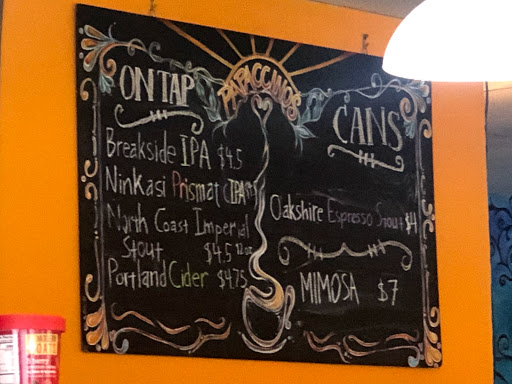 PAPACCINO'S
ON TAP
Breakside IPA $4.5
Ninkasi Prismatic IPA
North Coast Imperial
Stout $4.5 12oz
Portland Cider $4.75
CANS
Oakshire Espresso Stout $4
MIMOSA $7